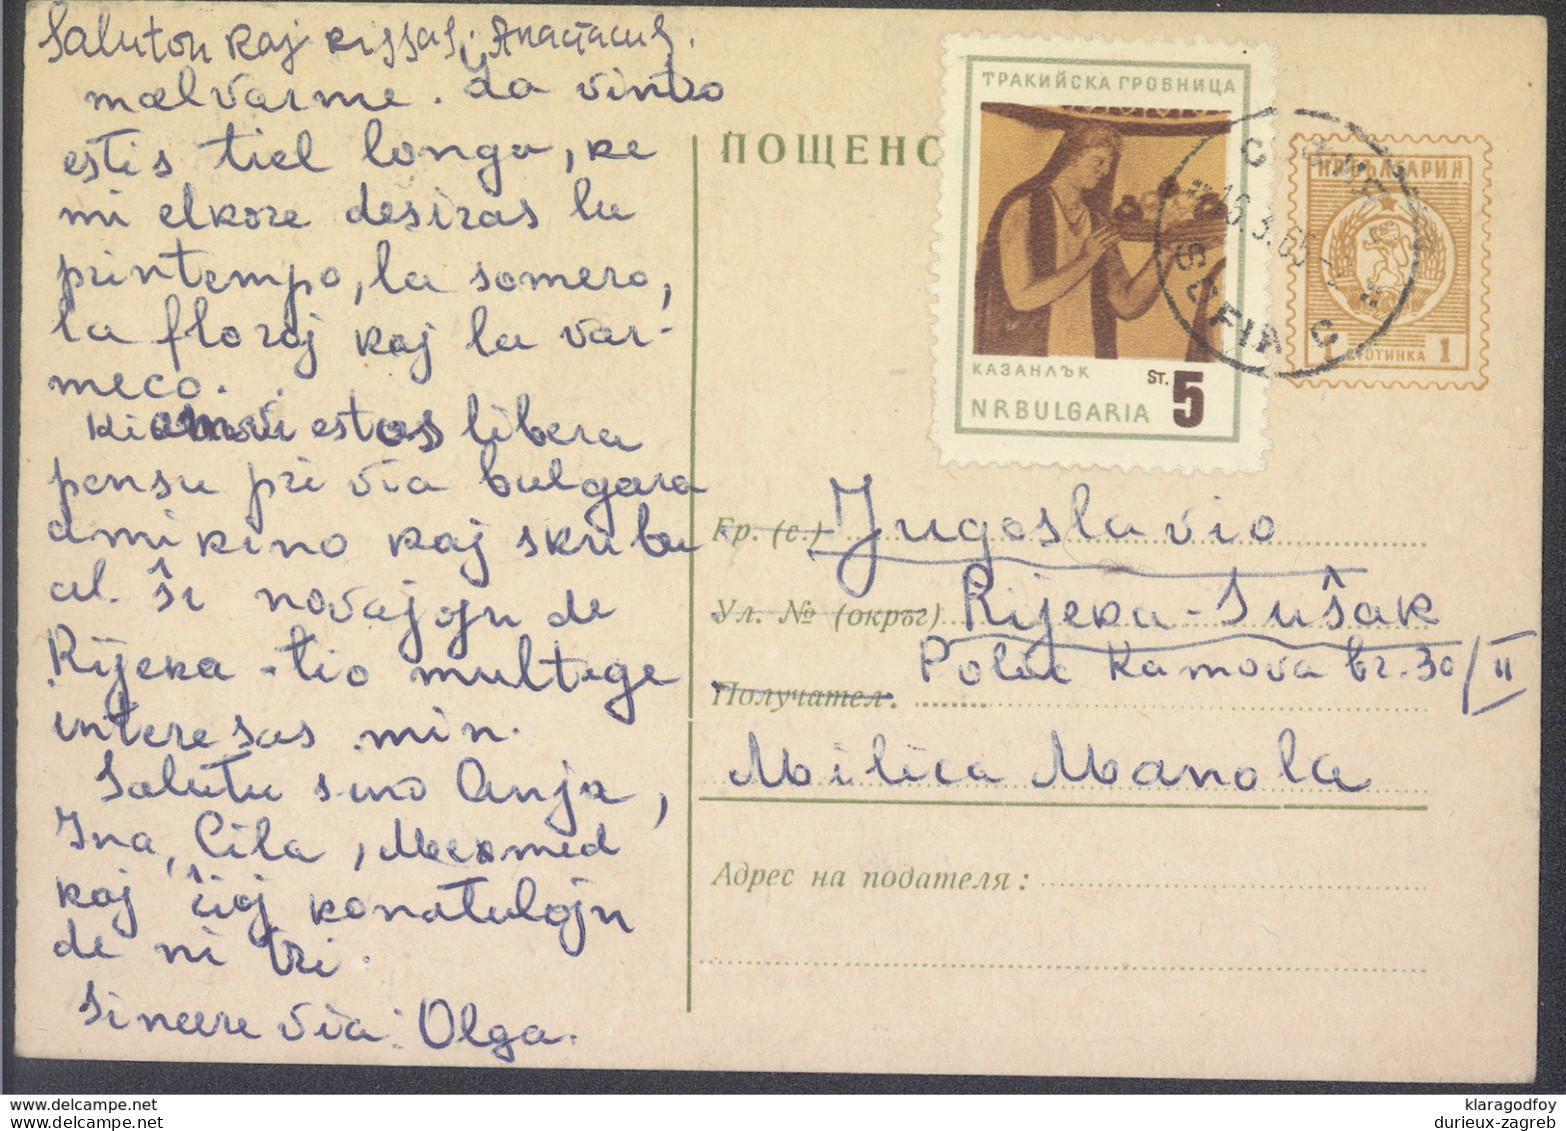 Saluton kaj kissas, Анастасия.
malvarme. La vintro
estis tiel longa, ke
mi elkore desiras la
printempo, la somero,
la floroj kaj la var-
meco.
Kiam vi estos libera
pensu pri via bulgara
amikino kaj skribu
al ŝi novajojn de
Rijeka - tio multege
interesas min.
Salutu s-ino Anja,
Ina, Cila, Mexmed
kaj ĉioj konatulojn
de ni tri.
Sincere via: Olga.
ПОЩЕНС
ТРАКИЙСКА ГРОБНИЦА
КАЗАНЛЪК
ST. 5
NRBULGARIA
СОФИЯ
16.3.65
SOFIA C
НР БЪЛГАРИЯ
1 СТОТИНКА 1
Гр. (с.) Jugoslavio
Ул. № (окръг) Rijeka - Sušak
Polić Kamova br. 30/II
Получател:
Milica Manola
Адрес на подателя:
klaragodfoy
durieux-zagreb